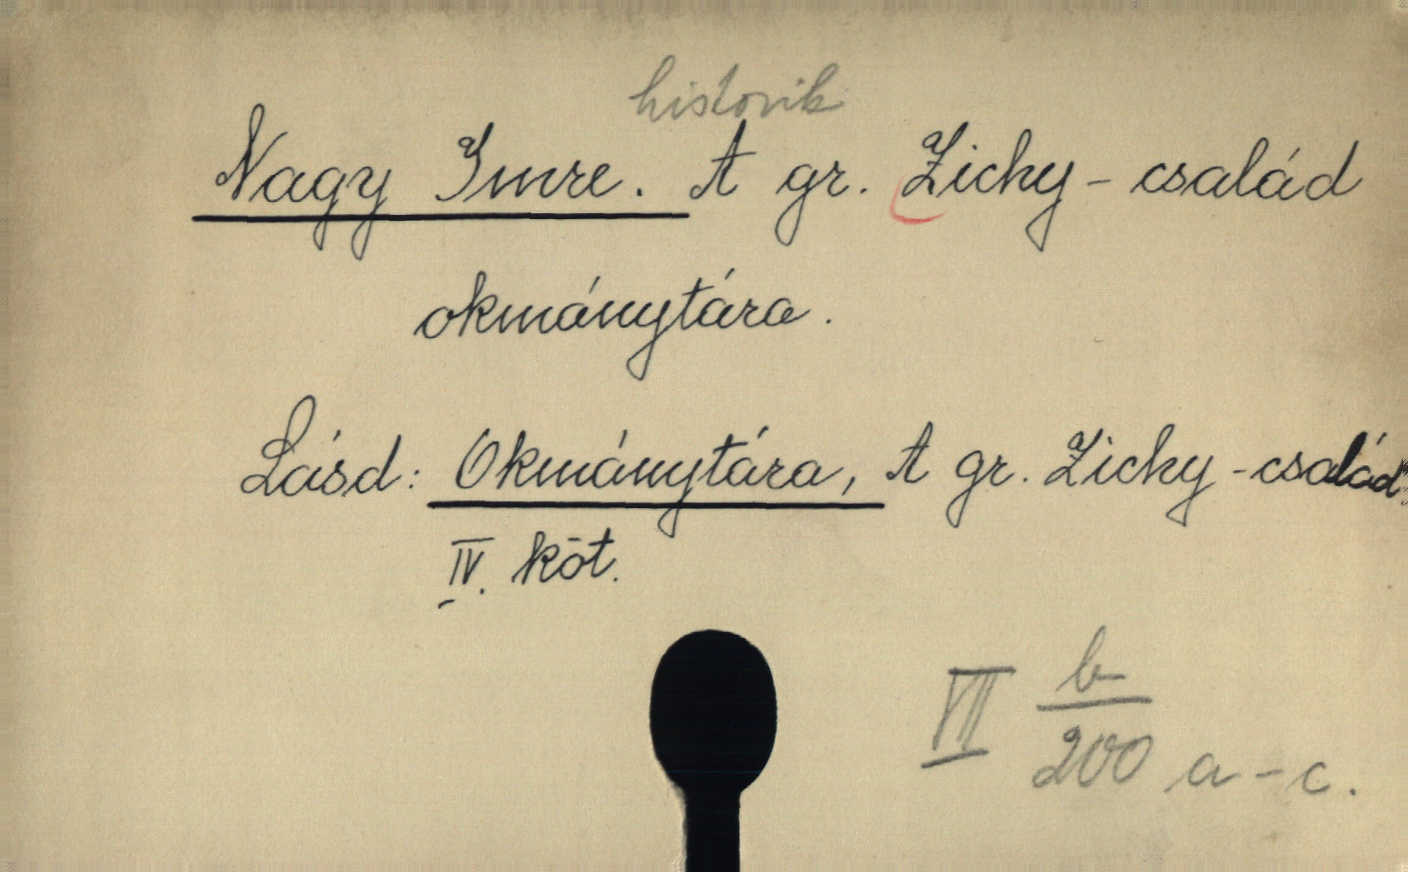 historik
Nagy Imre. A gr. Zichy-család
okmánytára.
Lásd: Okmánytára, A gr. Zichy-család
IV. köt.
VII b
200 a-c.